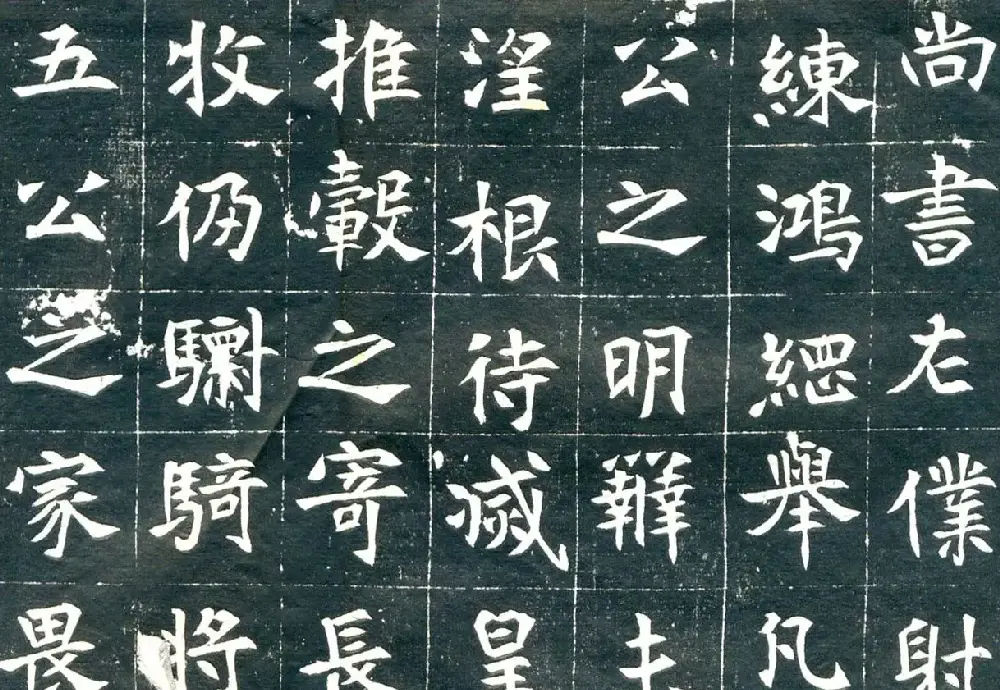 尚書左僕射
練鴻緫舉凡
公之明辯
涅根待滅皇
推轂之寄長
牧仍騎將
五公之家畏